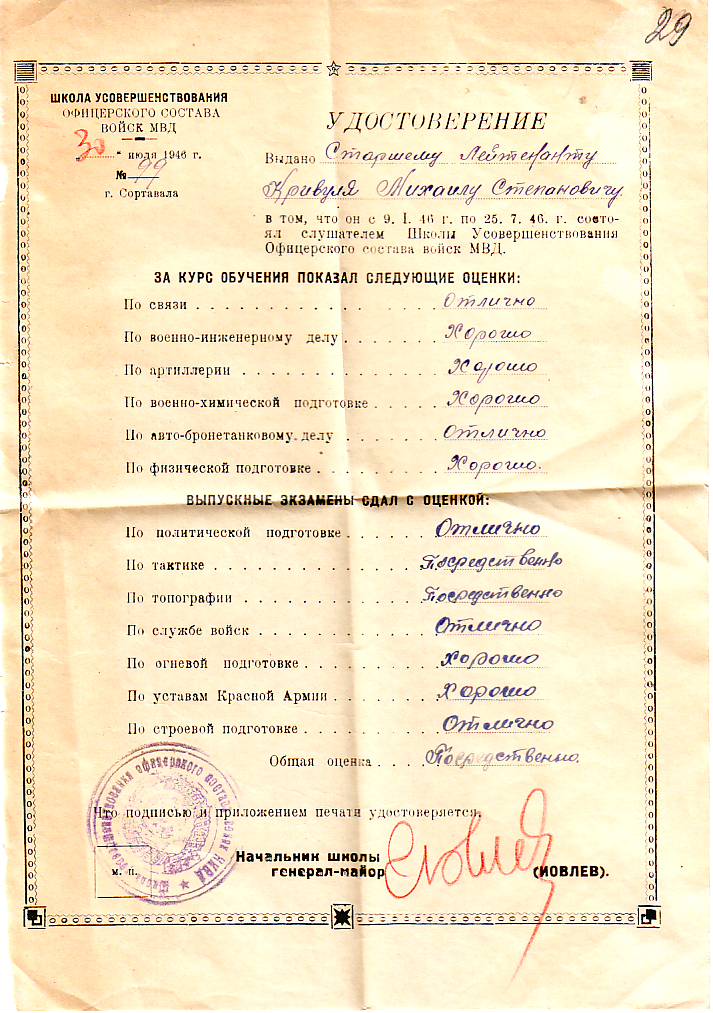 29
ШКОЛА УСОВЕРШЕНСТВОВАНИЯ
ОФИЦЕРСКОГО СОСТАВА
ВОЙСК МВД
30 " июля 1946 г.
№ 99
г. Сортавала
УДОСТОВЕРЕНИЕ
Выдано Старшему Лейтенанту
Кривуля Михаилу Степановичу
в том, что он с 9. I. 46 г. по 25. 7. 46. г. состо-
ял слушателем Школы Усовершенствования
Офицерского состава войск МВД.
ЗА КУРС ОБУЧЕНИЯ ПОКАЗАЛ СЛЕДУЮЩИЕ ОЦЕНКИ:
По связи . . . . . . . . . . . . . . . Отлично
По военно-инженерному делу . . . . . . . Хорошо
По артиллерии . . . . . . . . . . . . . Хорошо
По военно-химической подготовке . . . . . Хорошо
По авто-бронетанковому делу . . . . . . . Отлично
По физической подготовке . . . . . . . . Хорошо.
ВЫПУСКНЫЕ ЭКЗАМЕНЫ СДАЛ С ОЦЕНКОЙ:
По политической подготовке . . . . . . Отлично
По тактике . . . . . . . . . . . . . . Посредственно
По топографии . . . . . . . . . . . . . Посредственно
По службе войск . . . . . . . . . . . . Отлично
По огневой подготовке . . . . . . . . . Хорошо
По уставам Красной Армии . . . . . . . Хорошо
По строевой подготовке . . . . . . . . . Отлично
Общая оценка . . . . Посредственно.
Что подписью и приложением печати удостоверяется.
Начальник школы
генерал-майор Иовлев (ИОВЛЕВ).
м. п.
Школа усовершенствования офицерского состава войск НКВД